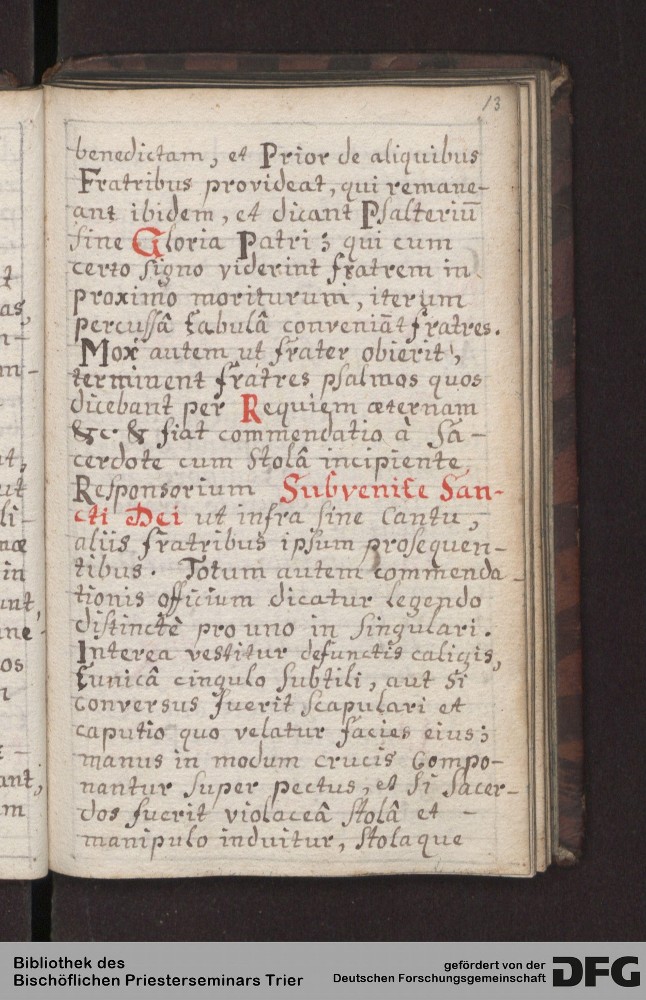 13
benedictam, et Prior de aliquibus
Fratribus provideat, qui remane-
ant ibidem, et dicant Psalteriū
sine Gloria Patri; qui cum
certo signo viderint fratrem in
proximo moriturum, iterum
percussâ tabulâ conveniāt fratres.
Mox autem ut frater obierit,
terminent fratres psalmos quos
dicebant per Requiem æternam
&c. & fiat commendatio à Sa-
cerdote cum Stolâ incipiente
Responsorium Subvenite San-
cti Dei ut infra sine Cantu,
aliis fratribus ipsum prosequen-
tibus. Totum autem commenda-
tionis officium dicatur legendo
distinctè pro uno in singulari.
Interea vestitur defunctis caligis,
tunicâ cingulo subtili, aut si
conversus fuerit scapulari et
caputio quo velatur facies eius;
manus in modum crucis Compo-
nantur super pectus, et si sacer-
dos fuerit violaceâ stolâ et -
manipulo induitur, stolaque
Bibliothek des
Bischöflichen Priesterseminars Trier
gefördert von der
Deutschen Forschungsgemeinschaft
DFG